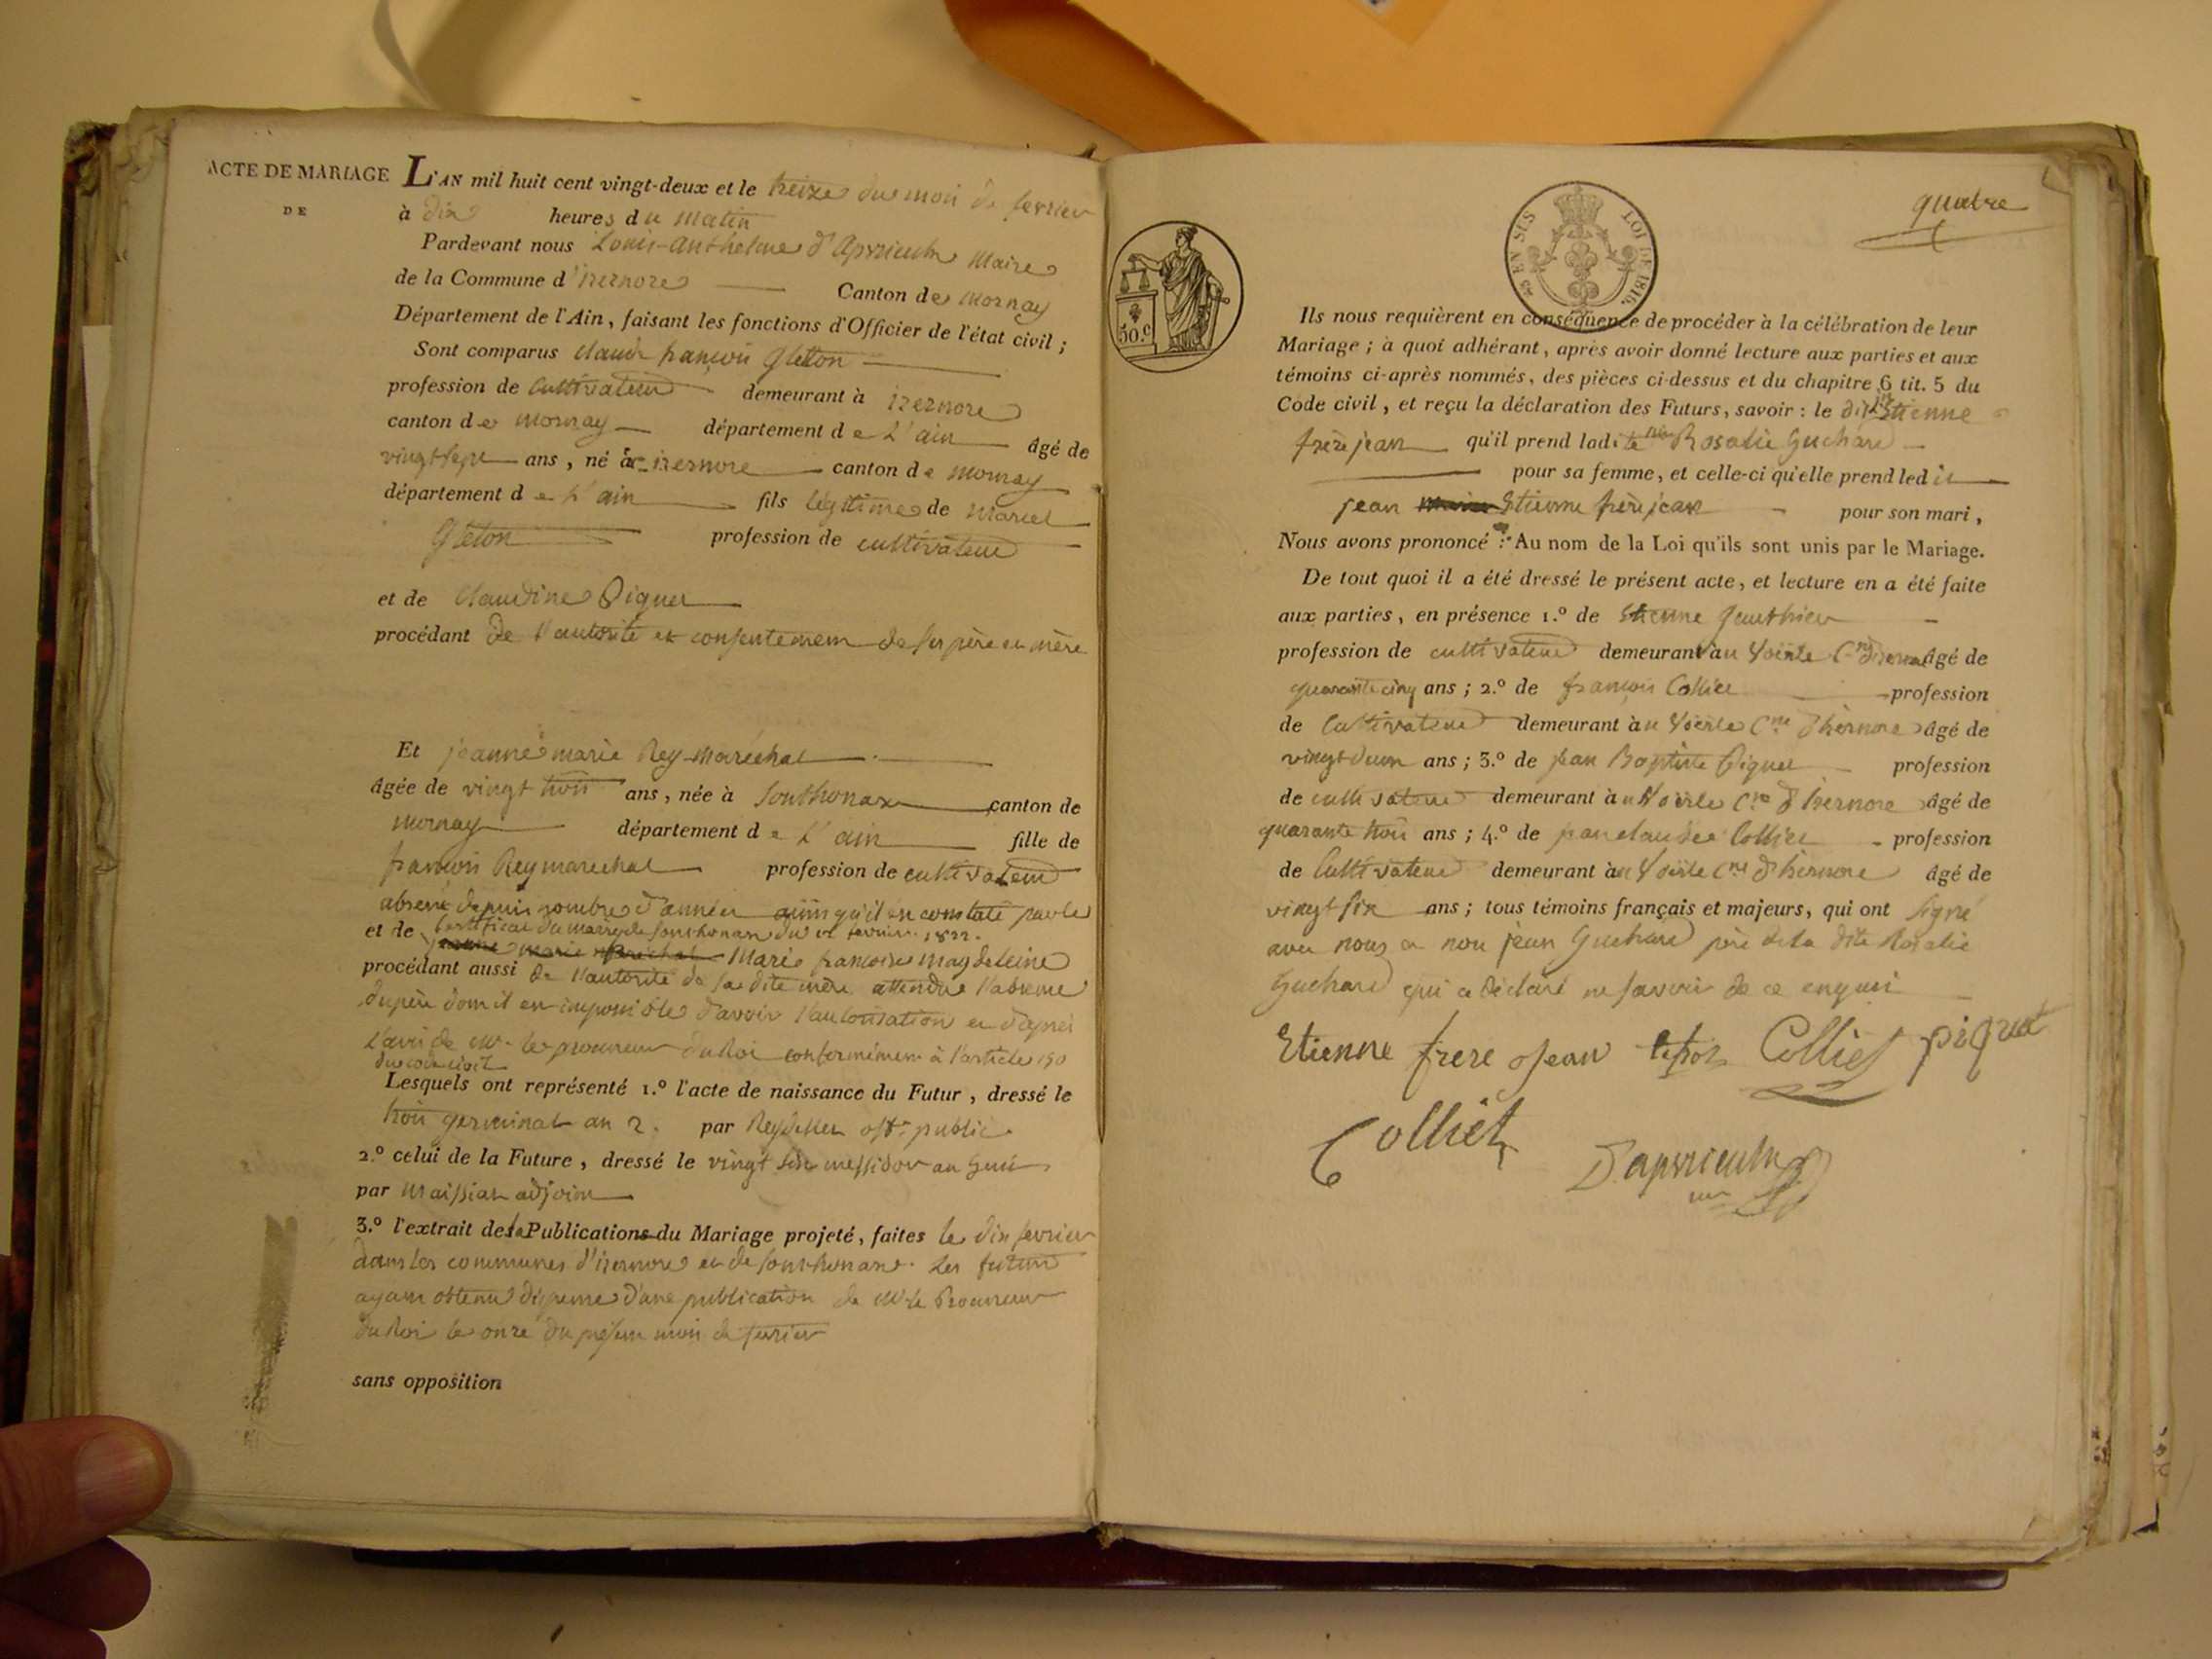 ACTE DE MARIAGE
DE
L'AN mil huit cent vingt-deux et le treize du mois de fevrier
à dix heures du matin
Pardevant nous Louis-Anthelme d'Apvrieulx Maire
de la Commune d'izernore Canton de Mornay
Département de l'Ain, faisant les fonctions d'Officier de l'état civil ;
Sont comparus claude françois Gleton
profession de Cultivateur demeurant à izernore
canton de Mornay département de L'ain âgé de
vingt sept ans, né à izernore canton de Mornay
département de L'ain fils légitime de Marcel
Gleton profession de cultivateur
et de Claudine Piquet
procédant de l'autorité et consentement de ses père et mère
Et jeanne marie Rey-Maréchal
âgée de vingt trois ans, née à Sonthonax canton de
Mornay département de L'ain fille de
françois Reymarechal profession de cultivateur
absent depuis nombre d'années ainsi qu'il en constate par le
certificat du maire de Sonthonax du fevrier 1822.
et de jeanne marie Marie françoise Magdeleine
procédant aussi de l'autorité de sa dite mère attendue l'absence
du père dont il en impossible d'avoir l'autorisation et d'après
L'avis de Mr. le procureur du Roi conformément à l'article 150
du code civil
Lesquels ont représenté 1.º l'acte de naissance du Futur, dressé le
trois germinal an 2. par Reydellet off. public
2.º celui de la Future, dressé le vingt messidor an
par Maissiat adjoint
3.º l'extrait des la Publications du Mariage projeté, faites le dix fevrier
dans les communes d'izernore et de Sonthonax. Les futurs
ayant obtenu dispense d'une publication de Mr le Procureur
du Roi le onze du présent mois de fevrier
sans opposition
quatre
LOI DE 1816.
50.c
Ils nous requièrent en conséquence de procéder à la célébration de leur
Mariage ; à quoi adhérant, après avoir donné lecture aux parties et aux
témoins ci-après nommés, des pièces ci-dessus et du chapitre 6 tit. 5 du
Code civil, et reçu la déclaration des Futurs, savoir : le dit Etienne
frère jean qu'il prend ladite Rosalie Guchard
pour sa femme, et celle-ci qu'elle prend ledit
jean Etienne frère jean pour son mari,
Nous avons prononcé : Au nom de la Loi qu'ils sont unis par le Mariage.
De tout quoi il a été dressé le présent acte, et lecture en a été faite
aux parties, en présence 1.º de Etienne Gauthier
profession de cultivateur demeurant au Voërle Cne d'izernore âgé de
quarante cinq ans ; 2.º de françois Colliet profession
de Cultivateur demeurant àu Voërle Cne d'Izernore âgé de
vingt deux ans ; 3.º de jean Baptiste Piquet profession
de cultivateur demeurant àu Voërle Cne d'Izernore âgé de
quarante trois ans ; 4.º de jean claude Colliet profession
de Cultivateur demeurant àu Voërle Cne d'Izernore âgé de
vingt six ans ; tous témoins français et majeurs, qui ont signé
avec nous et non jean Guchard père de la dite Rosalie
Guchard qui a déclaré ne savoir de ce enquis
Etienne frere Jean Colliet piquet
Colliet D'apvrieulx